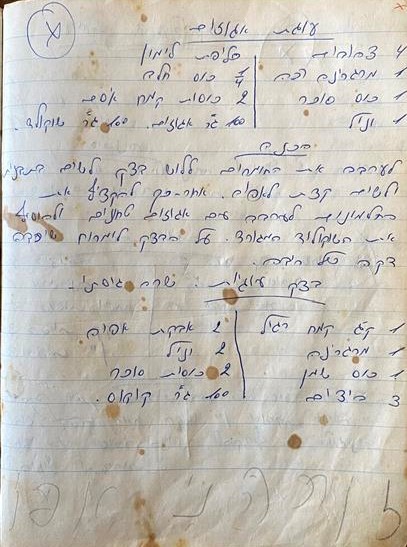 עוגת אגוזים
4 צהובים קליפת לימון
1 מרגרינה רכה 1/4 כוס חלב
1 כוס סוכר 2 כוסות קמח אסם
1 וניל 100 גר' אגוזים. 100 גר' שוקולד.
הכנה
לערבב את החומרים ללוש בצק לשים בתבנית
ולשים קצת לאפיה. אחר-כך להקציף את
החלבונים לערבב עם אגוזים טחונים ולהוסיף
את השוקולד המגורד. על הבצק למרוח שיכבה
דקה של ריבה.
בצק עוגיות: שרה גיסתי.
1 ק"ג קמח רגיל 2 אבקת אפיה
1 מרגרינה 2 וניל
1 כוס שמן 2 כוסות סוכר
3 ביצים 100 גר' קוקוס.